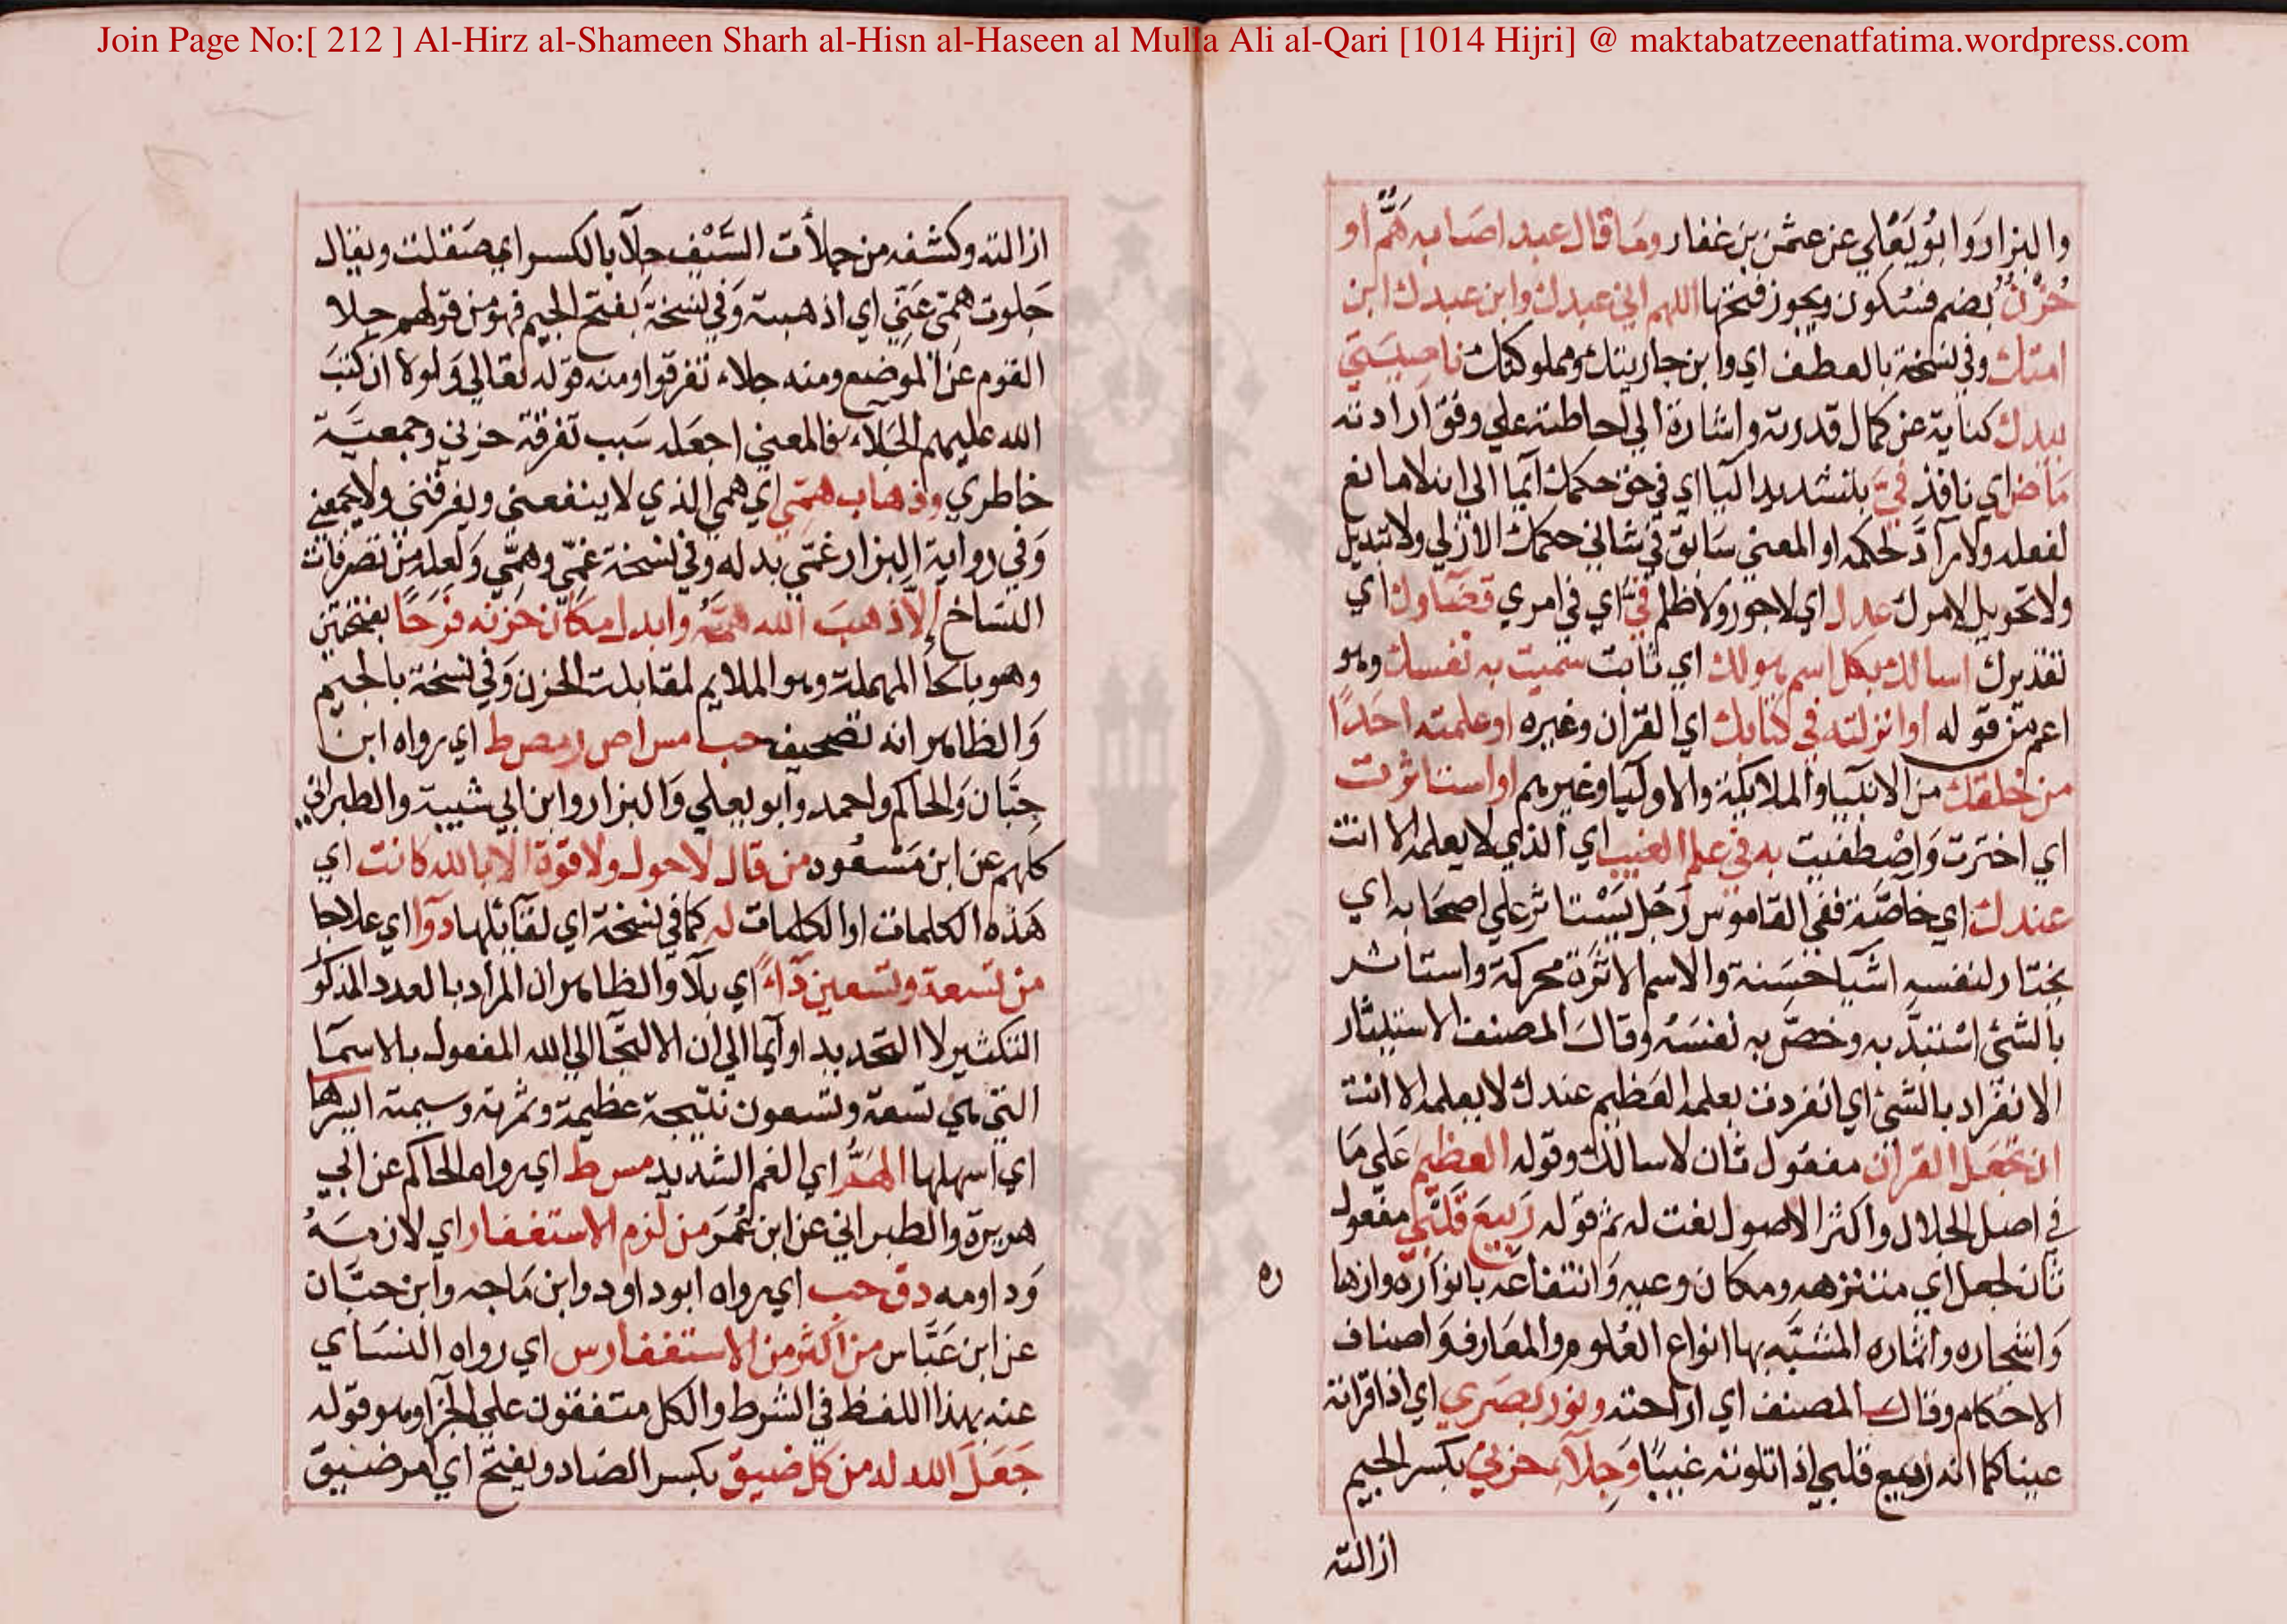 Join Page No:[ 212 ] Al-Hirz al-Shameen Sharh al-Hisn al-Haseen al Mulla Ali al-Qari [1014 Hijri] @ maktabatzeenatfatima.wordpress.com
والبزار وَابُو يَعْلي عن عثمن بن غفار وما قال عبد اصَابه هَمٌّ او
حُزْنٌ بضم فسُكون ويجوز فتحها اللهم اني عبدك وابن عبدك ابن
امتك وفي نسخة بالعطف اي وابن جاريتك ومملوكتك ناصيَتي
بيدك كناية عن كمال قدرته واشارة الي احاطته علي وفق ارادته
مَاضٍ اي نافذ فيّ بتشديد اليا اي في حق حكمك ايما الي انه لا مانع
لفعله ولا رآدّ لحكمه او المعني سَابق في شاني حكمك الازلي ولا تبديل
ولا تحويل لامرك عدل اي لا جور ولا ظلم فيَّ اي في امري قضَاوك اي
تقديرك اسالك بكل اسم هو لك اي ثابت سميت به نفسك وهو
اعم من قوله او انزلته في كتابك اي القرآن وغيره او علمته احَدًا
من خلقك من الانبيا والملايكة والاوليا وغيرهم او استاثرت
اي اخترت وَاصْطفيت به في علم الغيب اي الذي لا يعلمه الا انت
عندك اي خاصَّة ففي القاموس رَجُل يَسْتاثر علي اصحَابه اي
يختار لنفسه اشيا حَسَنة والاسم الاثرَة محركة واستاثر
بالشئ اسْتبَدَّ به وخصّ به نفسَهُ وقالَ المصنف الاستيثار
الانفراد بالشئ اي انفردت بعلمه العَظيم عندك لا يعلمه الا انت
ان تجعَل القرآن مفعُول ثان لاسالك وقوله العظيم عَلي مَا
في اصل الجلال واكثر الاصول نعت له ثم قوله رَبيعَ قَلبي مفعول
ثان لجعل اي متنزهه ومكان وعيه وَانتفاعَه بانوَاره وازها
ره
وَاشجاره واثماره المشبَّه بها انواع العُلوم والمعَارف وَاصناف
الاحكام وقالَ المصنف اي ارَاحته ونور بصَري اي اذا قراته
عينا كما انه ربيع قلبي اذا تلوته غيبًا وَجِلآء حزني بكسر الجيم
ازالته
ازالته وكشفه من جلأت السَّيْف جلآ بالكسر اي صَقلت ويقال
جَلوت همّي عَنّي اي اذهبته وَفي نسخة بفتح الجيم فهو من قولهم جلا
القوم عن الموضع ومنه جلاء تفرقوا ومنه قوله تعَالي وَلولا ان كتبَ
الله عليهم الجَلاء فالمعني اجعَله سَبب تفرقة حزني وجمعيّة
خاطري وذهاب همّي اي همي الذي لا ينفعني ويفرقني ولا يجمعني
وَفي رواية البزار غمّي بدله وَفي نسخة غمّي وهمّي وَلعله من تصرفات
النسَاخ إلاّ اذهبَ الله همَّهُ وابدل مكان حزنه فرَحًا بفتحتين
وهو بالحا المهملة وهو الملايم لمقابلة الحزن وَفي نسخة بالجيم
وَالظاهر انه تصحيف حب مس اص ر مص ط اي رواه ابن
حِبَّان وَالحاكم واحمد وابو يعلي وَالبزار وابن ابي شيبة والطبراني
كلهم عن ابن مَسْعُود من قال لا حول ولا قوة الا بالله كانت اي
هَذه الكلمات او الكلمات له كما في نسخة اي لقآئلها دوآا اي علاجا
من تسعة وتسعين دآءً اي بلآ والظاهر ان المراد بالعدد المذكو
التكثير لا التحديد او ايما الي ان الالتجا الي الله المفعول بالاسمَا
التي هي تسعة وتسعون نتيجة عظيمة وثمرته وسيمة ايسرها
اي اسهلها الهَمُّ اي الغم الشديد مس ط اي رواه الحاكم عن ابي
هريرة والطبراني عن ابن عُمَر من لزم الاستغفار اي لازمَهُ
وَداومه د ق حب اي رواه ابو داود وابن مَاجه وابن حبَّان
عن ابن عَبَّاس من اكثر من الاستغفار س اي رواه النسَاي
عنه بهذا اللفظ في الشرط والكل متفقون علي الجزآ وهو قوله
جَعَلَ الله له من كل ضيق بكسر الضاد ويفتح اي امر ضيق